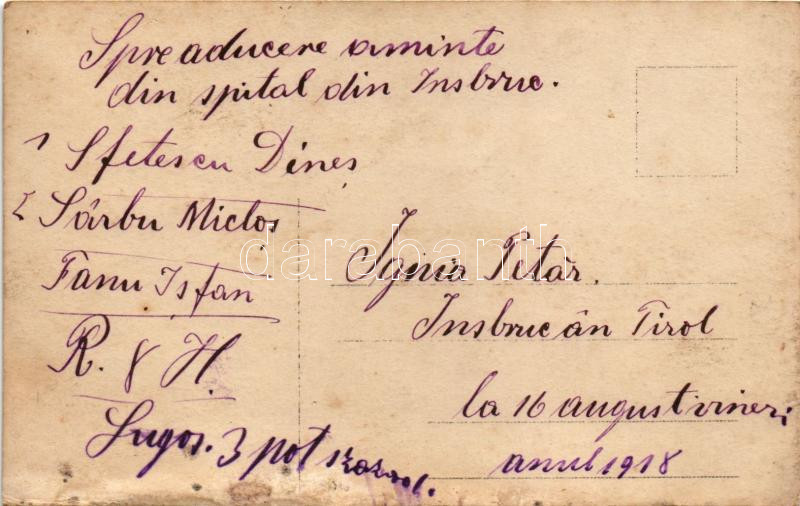 Spre aducere aminte
din spital din Insbruc.
1 Sfetescu Dines
2 Sârbu Miclos
Fanu Isfan
R. 8 H.
Lugos. 3 pot
Ignia Petăr.
Insbruc ân Tirol
la 16 august vineri
anul 1918
darabanth